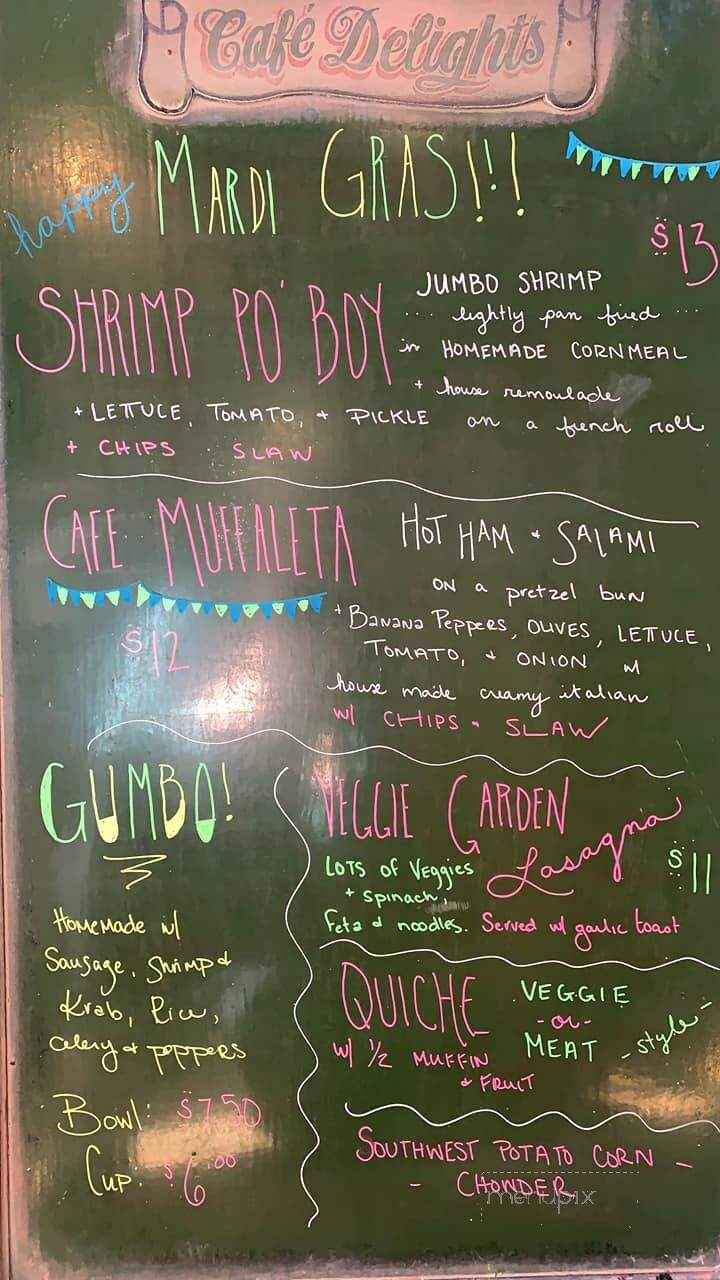 Café Delights
happy MARDI GRAS!!!
$13
SHRIMP PO' BOY
JUMBO SHRIMP
... lightly pan fried ...
in HOMEMADE CORNMEAL
+ house remoulade
+ LETTUCE, TOMATO, + PICKLE on a french roll
+ CHIPS · SLAW
CAFE MUFFALETA
$12
HOT HAM + SALAMI
ON a pretzel bun
+ Banana Peppers, OLIVES, LETTUCE,
TOMATO, + ONION w/
house made creamy italian
w/ CHIPS + SLAW
GUMBO!
Homemade w/
Sausage, Shrimp +
Krab, Rice,
Celery + peppers
Bowl: $7.50
Cup: $6.00
VEGGIE GARDEN
Lasagna
$11
LOTS OF Veggies
+ spinach,
Feta & noodles. Served w/ garlic toast
QUICHE
VEGGIE
-or-
MEAT -style-
w/ 1/2 MUFFIN
& FRUIT
SOUTHWEST POTATO CORN -
- CHOWDER
menupix